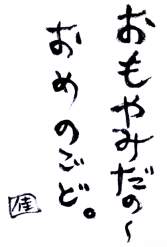 おもやみだの〜
おめのごど。